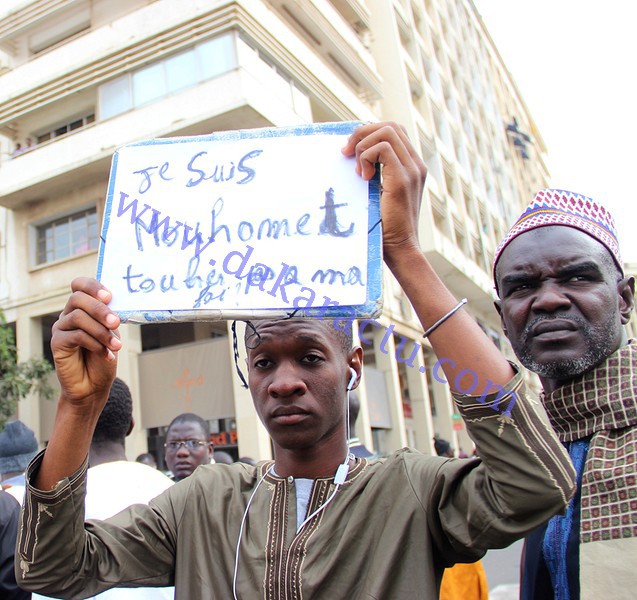 je Suis
Mouhomet
touher pas a ma
foi
www.dakaractu.com